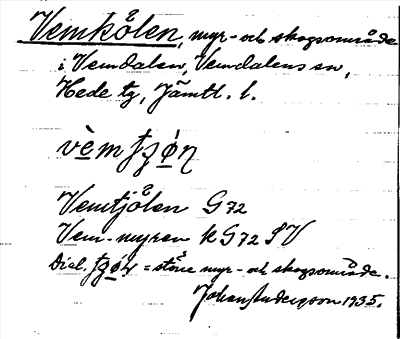 Vemkölen, myr- och skogsområde
i Vemdalen, Vemdalens sn,
Hede tg, Jämtl. l.
Vemtjölen G72
Vem-myren k G72 SV
Dial. = större myr- och skogsområde.
Johan Andersson 1935.